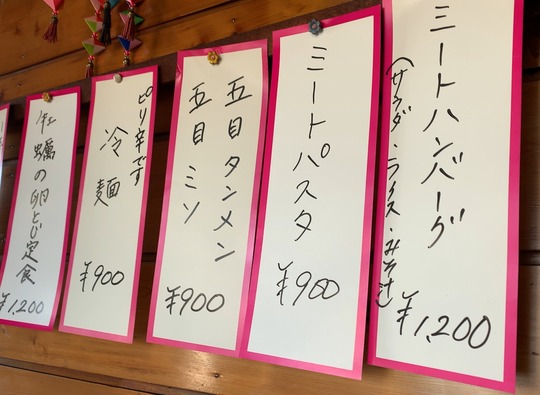 ミートハンバーグ
(サラダ・ライス・みそ汁)
¥1,200
ミートパスタ
¥900
五目タンメン
五目ミソ
¥900
ピリ辛です
冷麺
¥900
牡蠣の卵とじ定食
¥1,200